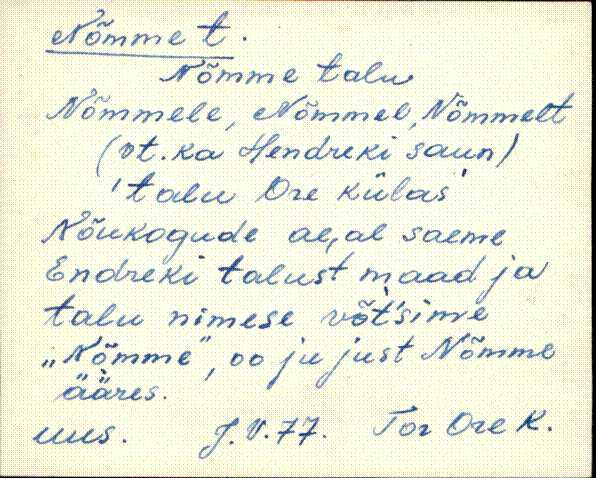 Nõmme t.
Nõmme talu
Nõmmele, Nõmmel, Nõmmelt
(vt. ka Hendreki saun)
'talu Ore külas'
Nõukogude ae,al saeme
Endreki talust maad ja
talu nimese võt'sime
„Nõmme”, oo ju just Nõmme
ääres.
uus. J.V.77. Tor Ore K.